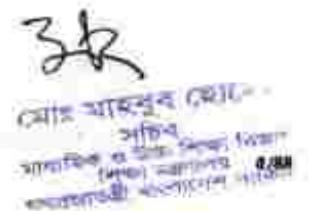 মোঃ মাহবুব হো
সচিব
মাধ্যমিক ও উচ্চ শিক্ষা বিভা
শিক্ষা মন্ত্রণালয়
গণপ্রজাতন্ত্রী বাংলাদেশ